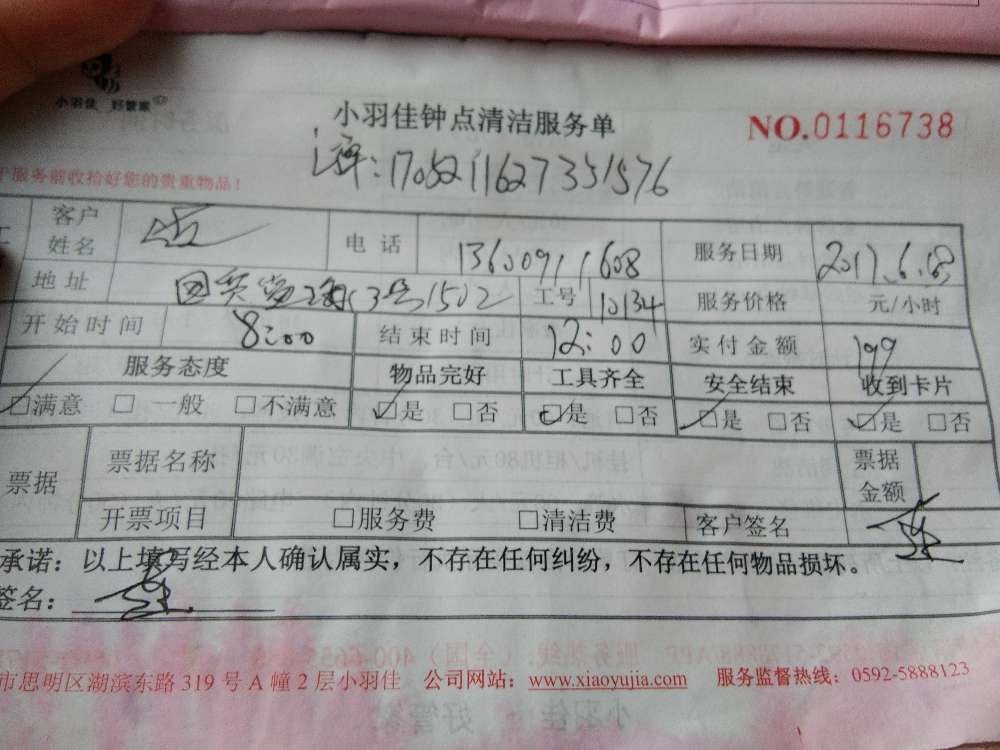 小羽佳 好管家
小羽佳钟点清洁服务单
NO.0116738
单:170521162733151576
于服务前收拾好您的贵重物品!
客户姓名 电话 13600911608 服务日期 2017.6.
地址 3号1502 工号 10134 服务价格 元/小时
开始时间 8:00 结束时间 12:00 实付金额 199
服务态度 物品完好 工具齐全 安全结束 收到卡片
满意 一般 不满意 是 否 是 否 是 否 是 否
票据 票据名称 票据金额
开票项目 服务费 清洁费 客户签名
承诺:以上填写经本人确认属实,不存在任何纠纷,不存在任何物品损坏。
签名:
市思明区湖滨东路 319 号 A 幢 2 层小羽佳 公司网站:www.xiaoyujia.com 服务监督热线:0592-5888123